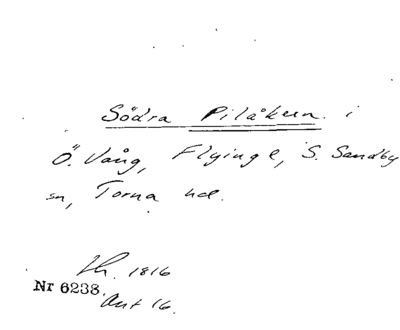 Södra Pilåkern i
Ö. Vång, Flyinge, S. Sandby
sn, Torna hd.
Lh. 1816
Nr 6238.
Akt 16.